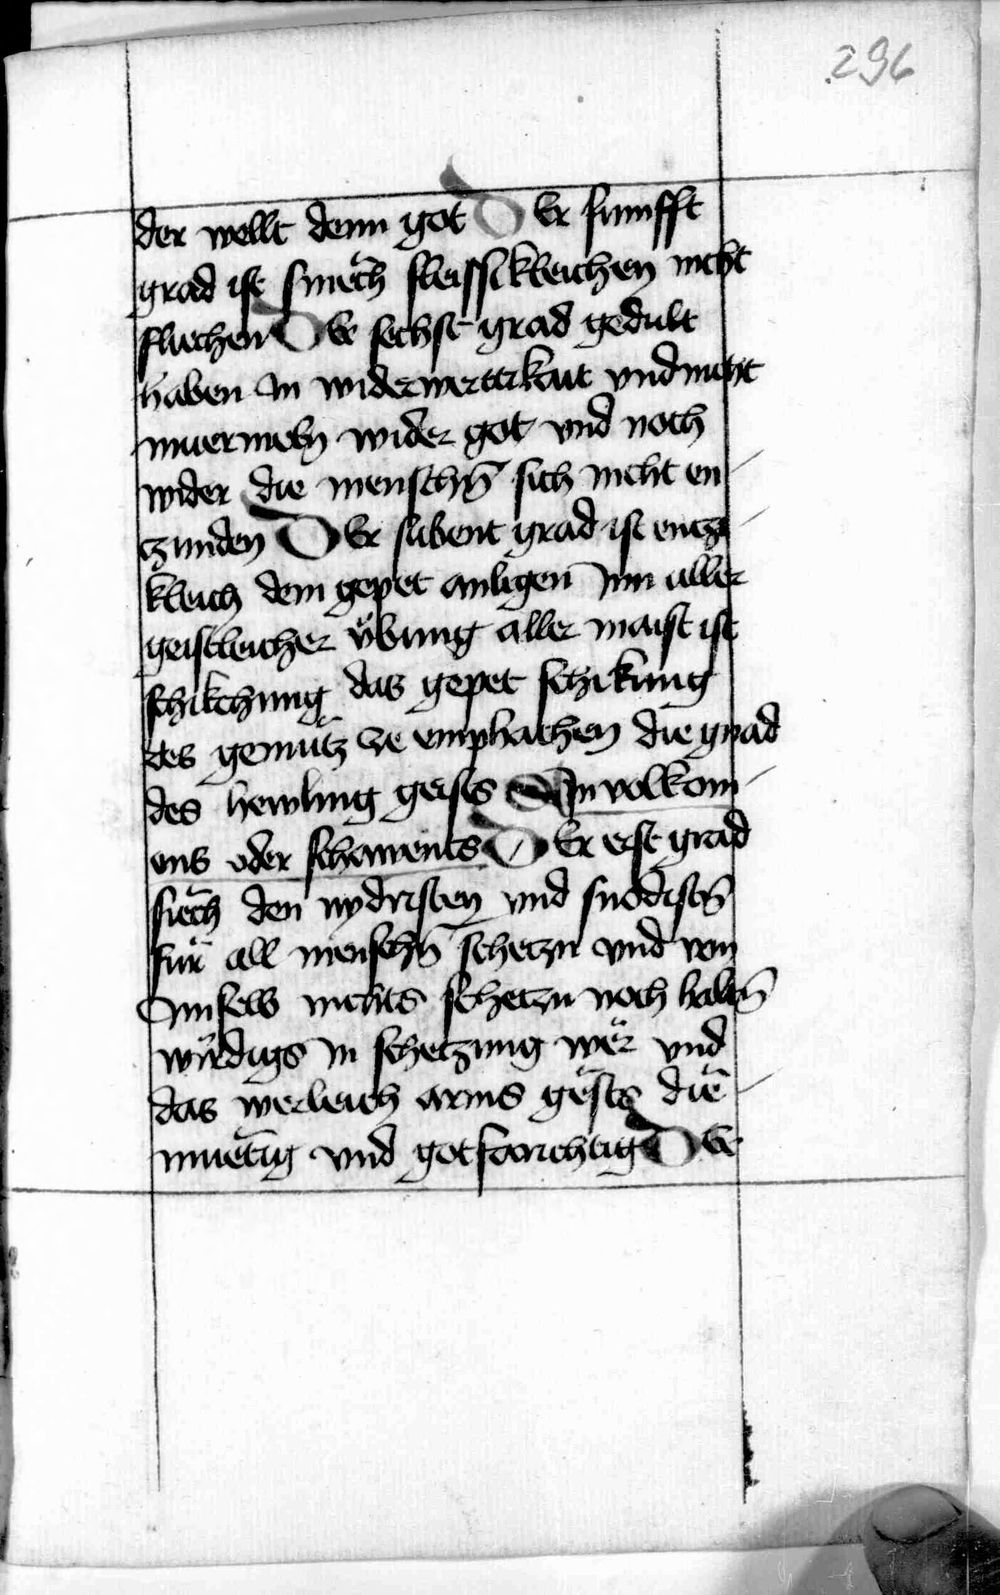 296
der wellt denn got Der fumfft
grad ist smech fleissikleichen nicht
fliechen Der sechst grad gedult
haben in widerwerttikait vnd nicht
muermeln wider got vnd noch
wider die menschn̄ sich nicht en
czunden Der sibent grad ist enczi
kleich dem gepet anligen Inn aller
geistleicher v̈bung aller maist ist
schikchung das gepet schikung
des gemütz ze emphachen die gnad
des heyling geists Ain volkom
ens oder schawents Der erst grad
sich den nydristen vnd snödistn̄
für all menschn̄ scheczn vnd von
Im selb nichts scheczn noch haltn̄
wirdigs in scheczung wer vnd
das werleich arms geists die
muetig vnd gotfarichtig Der